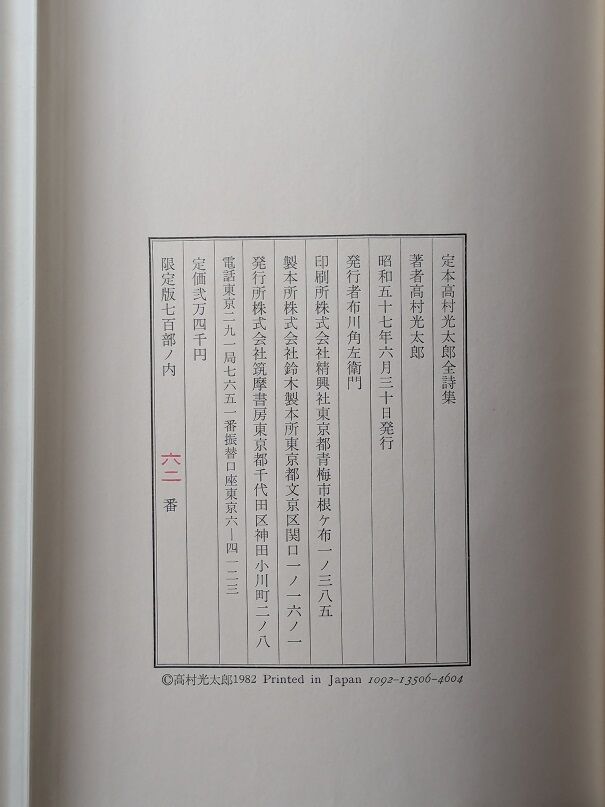 定本高村光太郎全詩集
著者高村光太郎
昭和五十七年六月三十日発行
発行者布川角左衛門
印刷所株式会社精興社東京都青梅市根ケ布一ノ三八五
製本所株式会社鈴木製本所東京都文京区関口一ノ一六ノ一
発行所株式会社筑摩書房東京都千代田区神田小川町二ノ八
電話東京二九一局七六五一番振替口座東京六—四一二三
定価弐万四千円
限定版七百部ノ内 六二 番
©高村光太郎1982 Printed in Japan 1092-13506-4604